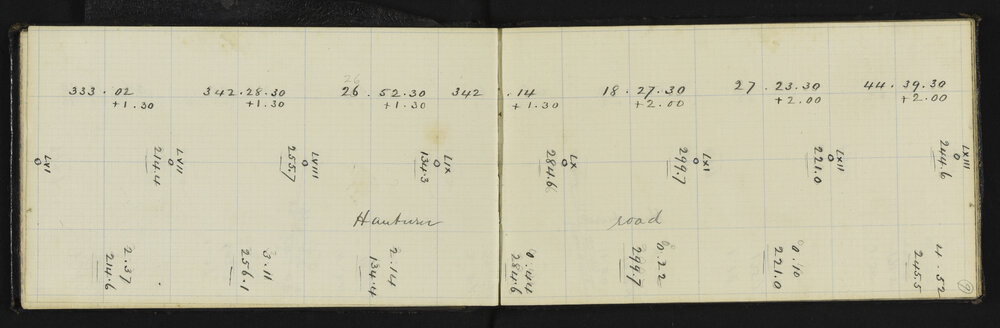 26
333.02 342.28.30 26.52.30 342.14 18.27.30 27.23.30 44.39.30
+1.30 +1.30 +1.30 +1.30 +2.00 +2.00 +2.00
LVI LVII LVIII LIX LX LXI LXII LXIII
214.4 255.7 134.3 284.6 299.7 221.0 244.6
road
2.37 3.11 2.14 0.44 0.22 0.10 4.52
214.6 256.1 134.4 284.6 299.7 221.0 245.5